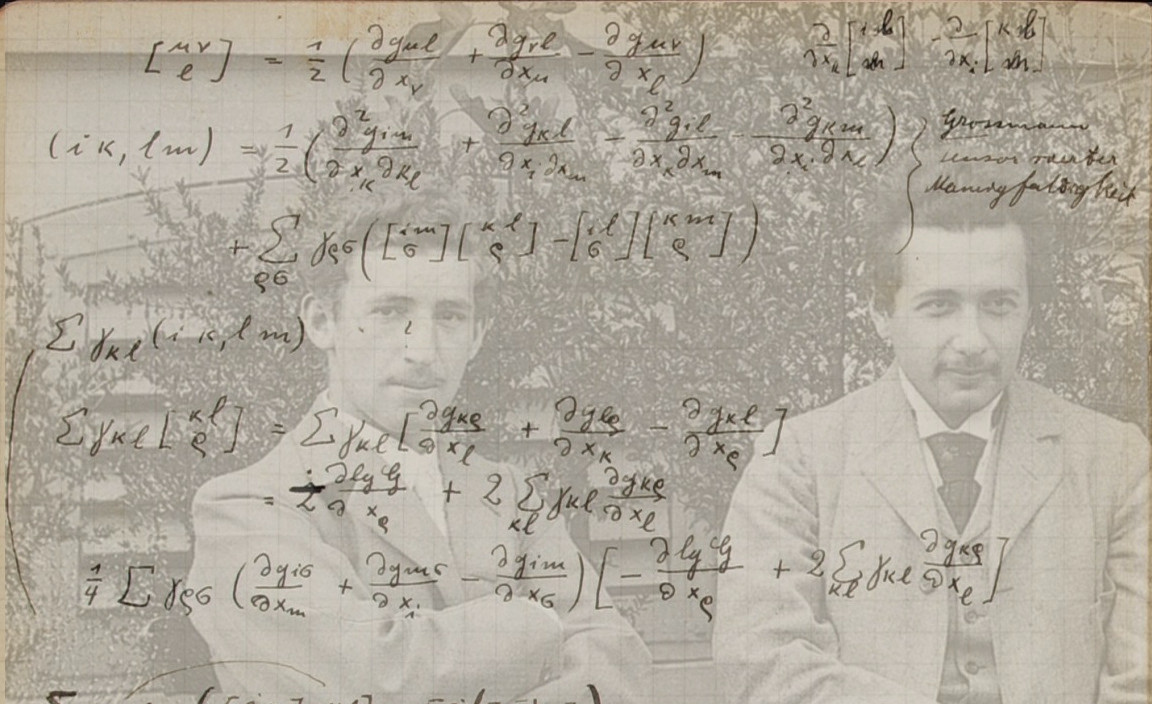 [μν l] = 1/2 (∂gμl/∂xν + ∂gνl/∂xμ − ∂gμν/∂xl) ∂/∂xκ [i l m] − ∂/∂xi [κ l m]
(iκ, lm) = 1/2 (∂²gim/∂xκ∂xl + ∂²gκl/∂xi∂xm − ∂²gil/∂xκ∂xm − ∂²gκm/∂xi∂xl) } Grossmann
Tensor vierter
Mannigfaltigkeit
+ ∑ρσ γρσ ([im σ][κl ρ] − [il σ][κm ρ])
∑ γκl (iκ, lm)
∑ γκl [κl ρ] = ∑ γκl [∂gκρ/∂xl + ∂glρ/∂xκ − ∂gκl/∂xρ]
= − ∂lgG/∂xρ + 2 ∑κl γκl ∂gκρ/∂xl
1/4 ∑ γρσ (∂giσ/∂xm + ∂gmσ/∂xi − ∂gim/∂xσ) [− ∂lgG/∂xρ + 2 ∑κl γκl ∂gκρ/∂xl]